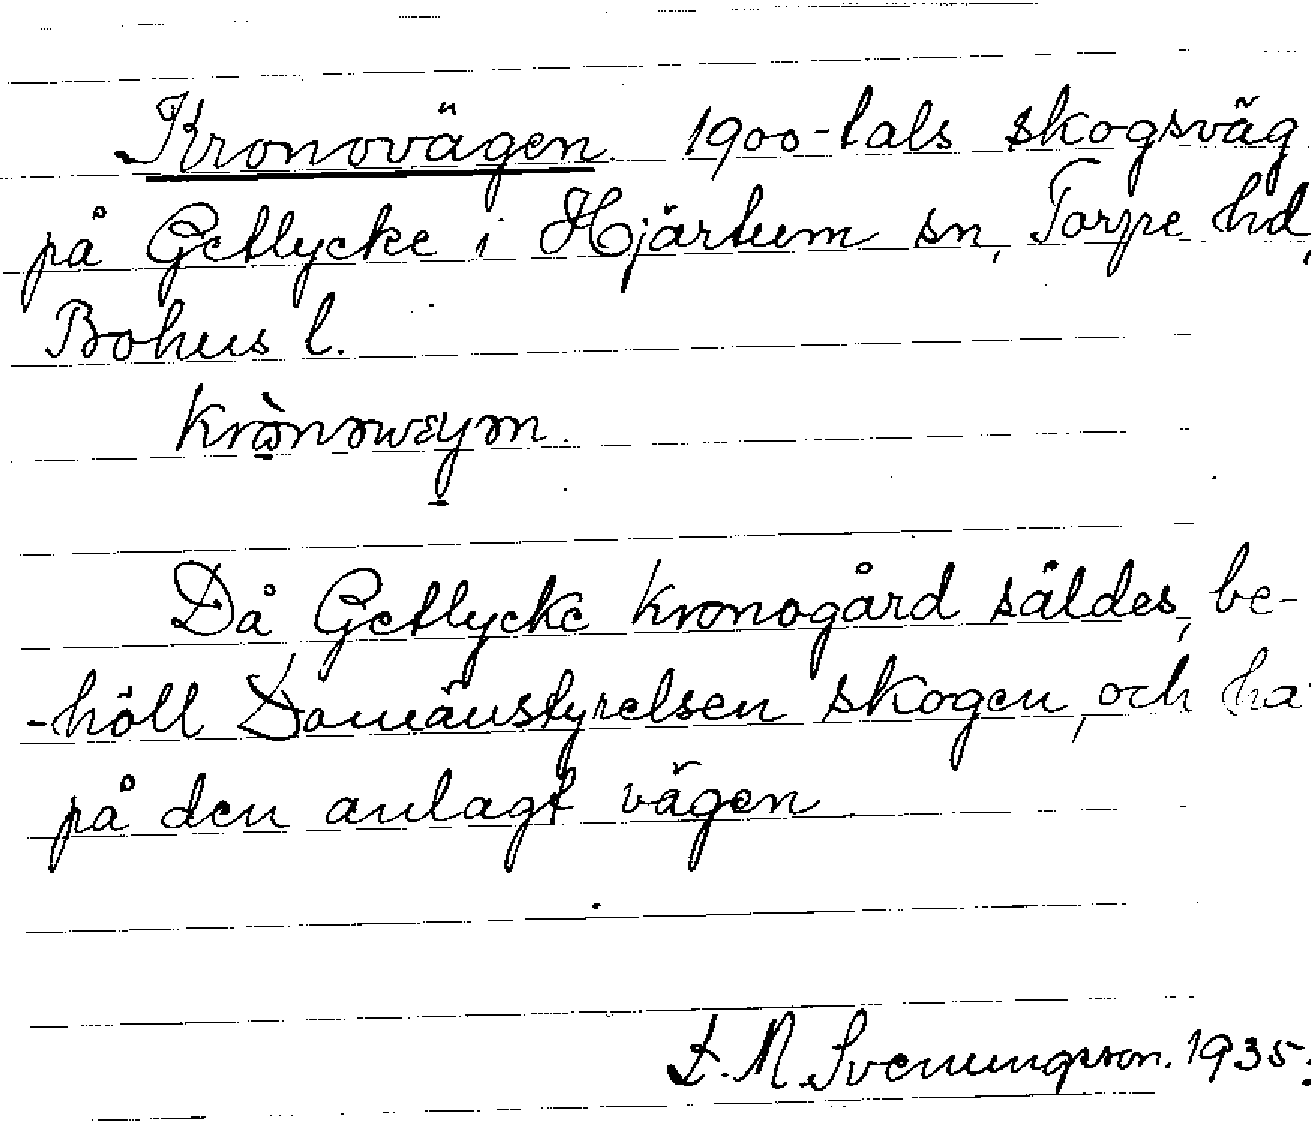 Kronovägen. 1900-tals skogsväg
på Getlycke i Hjärtum sn, Torpe hd,
Bohus l.
Då Getlycke kronogård såldes, be-
-höll Domänstyrelsen skogen, och ha
på den anlagt vägen.
F. M. Svenungsson. 1935.